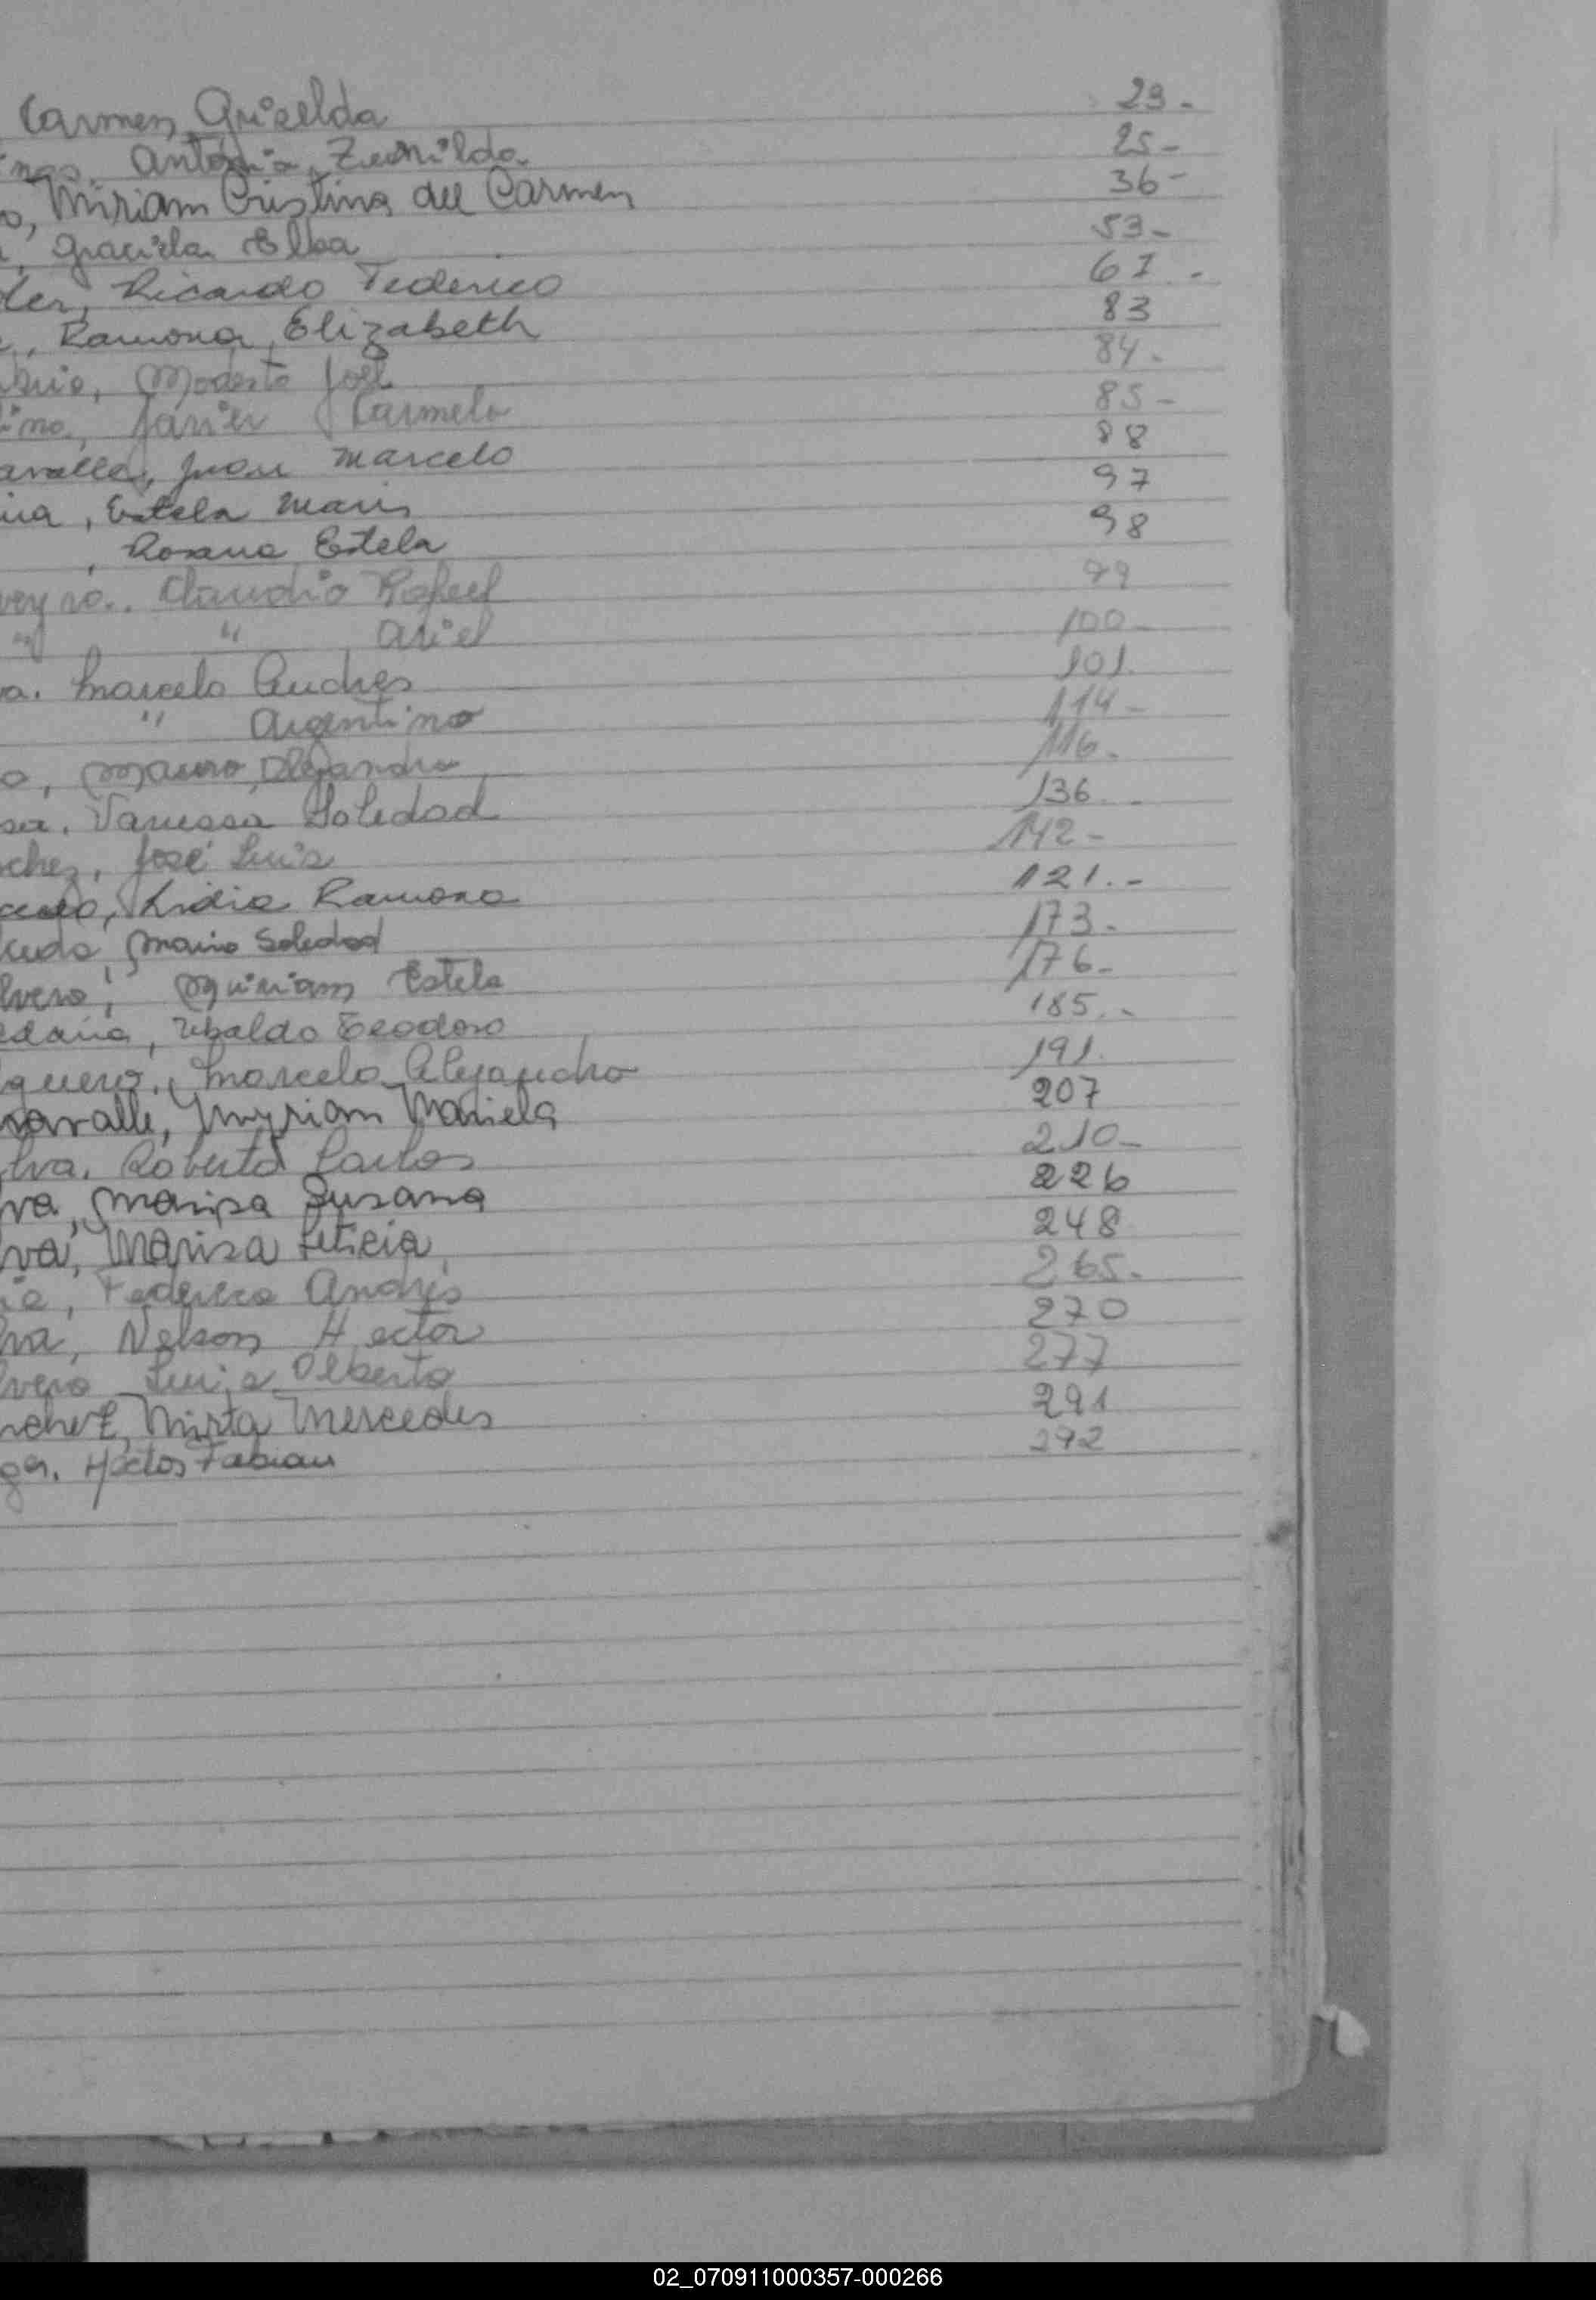 Carmen Griselda 23.-
Antonia Zunilda 25-
Miriam Cristina del Carmen 36-
Graciela Elba 53-
Ricardo Federico 61.
Ramona Elizabeth 83
Modesto José 84.
Javier Carmelo 85-
Juan Marcelo 88
Estela Maris 97
, Rosana Estela 98
Claudio Rafael 99
" " Ariel 100-
Marcelo Andres 101.
" Argentino 114-
Mauro Alejandro 116.
Vanessa Soledad 136.
chez, José Luis 142-
Lidia Ramona 121.-
Maria Soledad 173.-
lvero, Myriam Estela 176-
Ubaldo Teodoro 185.-
guero, Marcelo Alejandro 191.
ravalle, Myriam Mariela 207
lva. Roberto Carlos 210-
va, Marisa Susana 226
va, Marisa Leticia 248
Federico Andrés 265.
lva, Nelson Hector 270
lvero Luis Alberto 277
nchez, Mirta Mercedes 291
Héctor Fabian 292
02_070911000357-000266